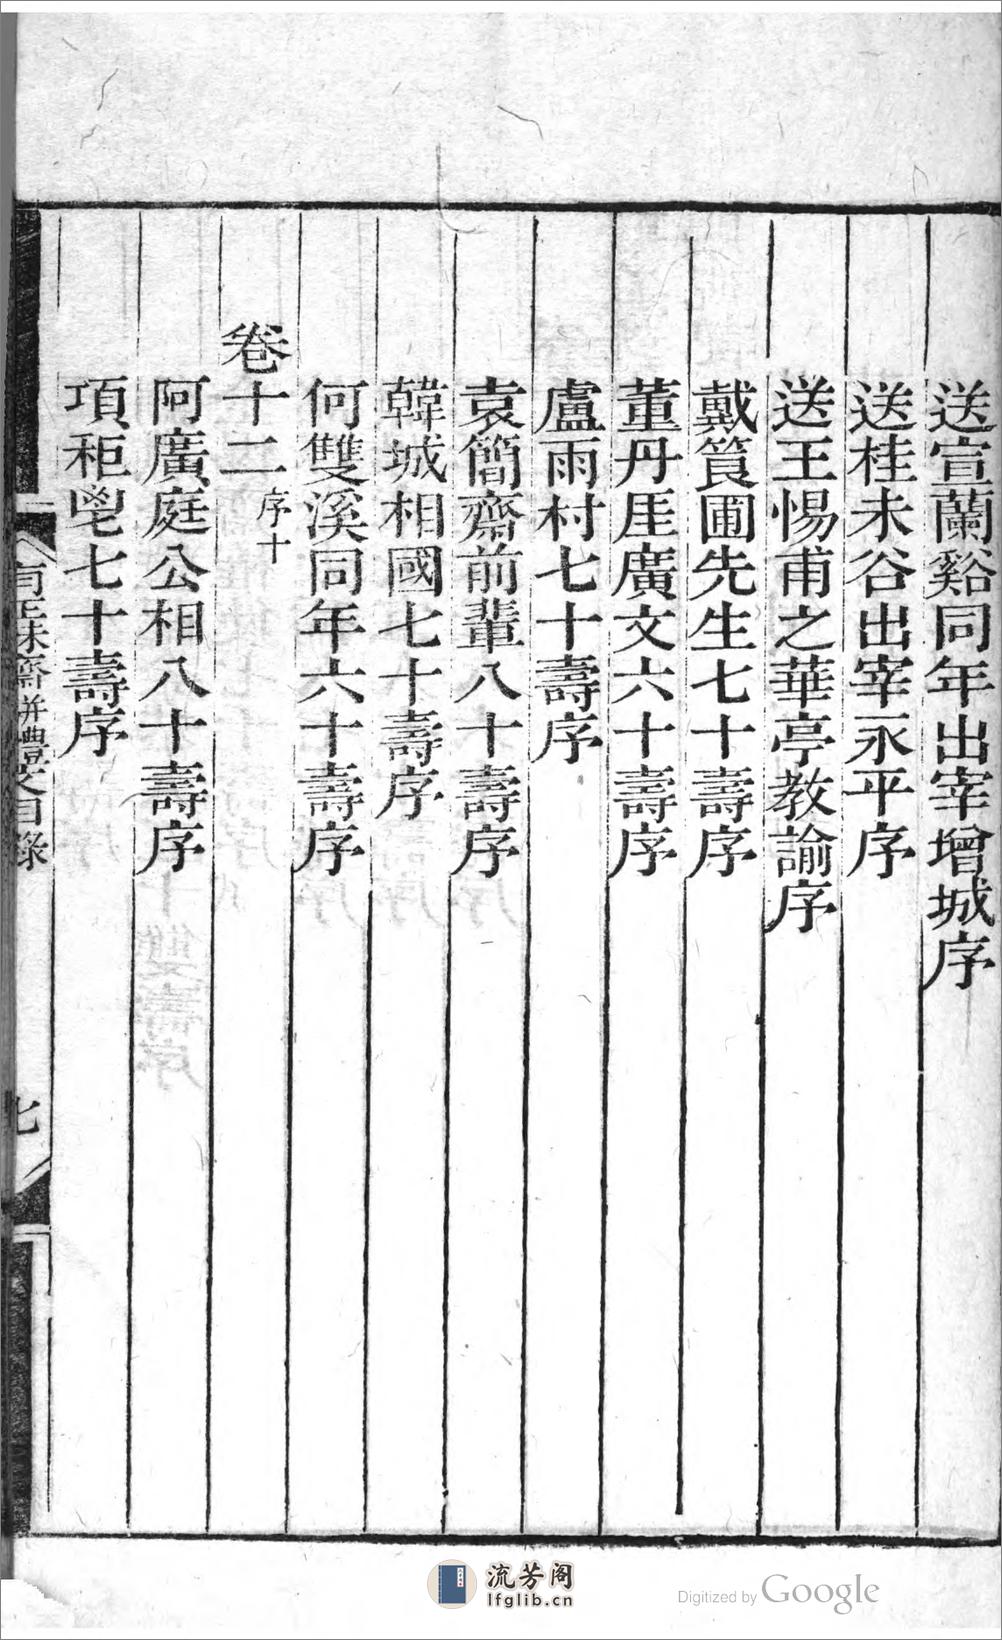 送宣蘭谿同年出宰增城序
送桂未谷出宰永平序
送王惕甫之華亭教諭序
戴簣圃先生七十壽序
董丹厓廣文六十壽序
盧雨村七十壽序
袁簡齋前輩八十壽序
韓城相國七十壽序
何雙溪同年六十壽序
卷十二 序十
阿廣庭公相八十壽序
項秬鬯七十壽序
有正味齋駢體文目錄
七
流芳阁
lfglib.cn
Digitized by Google